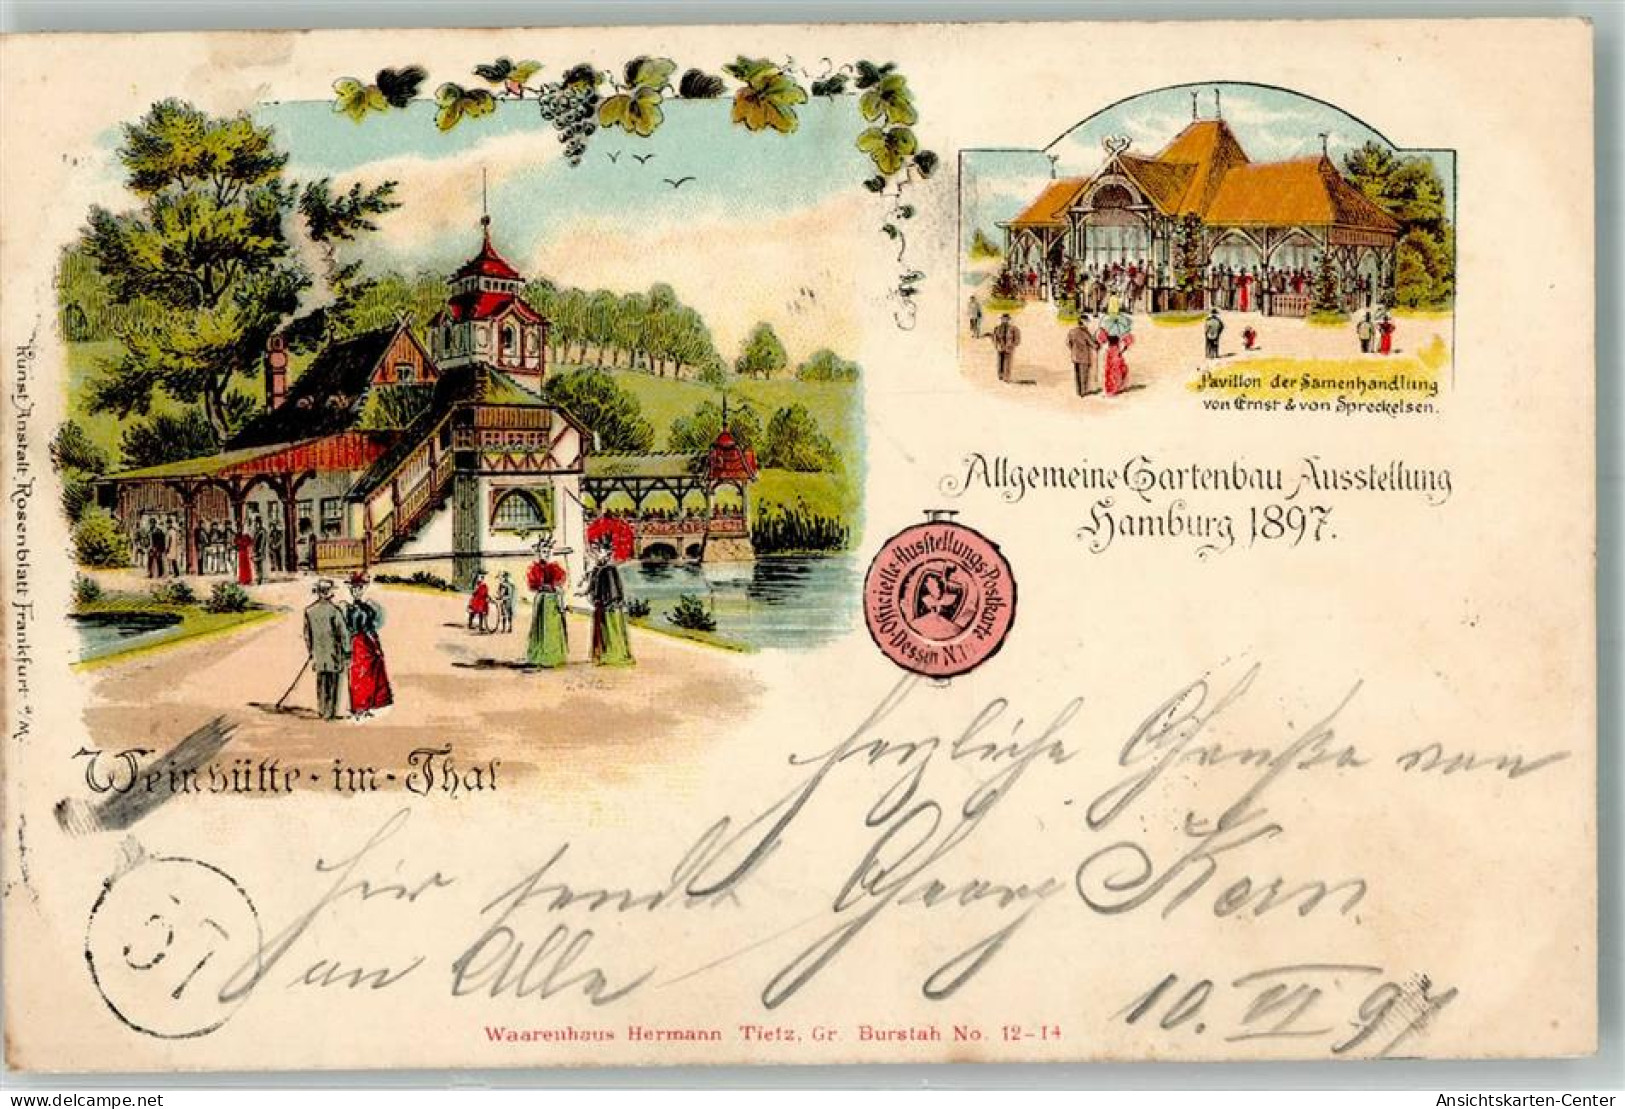 Pavillon der Samenhandlung
von Ernst & von Spreckelsen.
Allgemeine Gartenbau Ausstellung
Hamburg 1897.
Officielle-Ausstellungs-Postkarte
Dessin N.
Kunst Anstalt Rosenblatt Frankfurt a/M.
Weinhütte-im-Thal
herzliche Grüße von
hir sendet Georg Korn
an Alle
10. VI 97
Waarenhaus Hermann Tietz, Gr. Burstah No. 12-14
www.delcampe.net
Ansichtskarten-Center